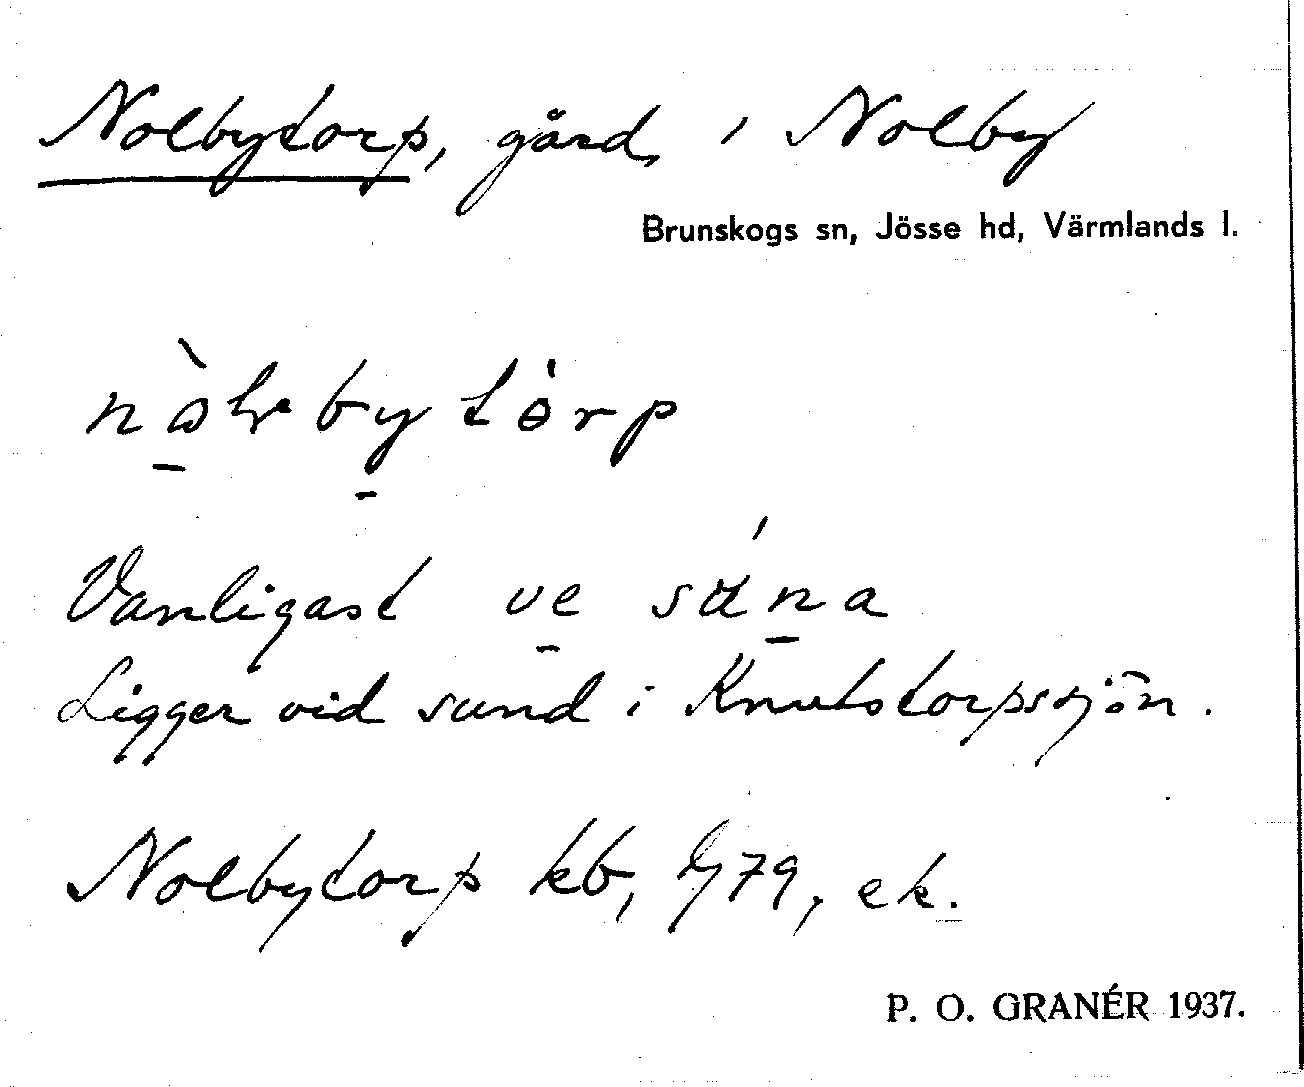 Nolbytorp, gård, i Nolby
Brunskogs sn, Jösse hd, Värmlands l.
Vanligast ve sána
Ligger vid sund i Knutstorpssjön.
Nolbytorp kb, 479, ek.
P. O. GRANÉR 1937.